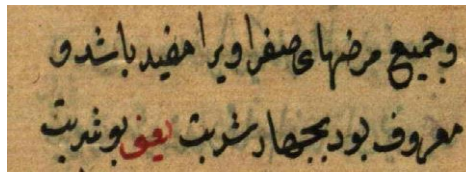 و جمیع مرضهای صفراویرا مفید باشد و
معروف بود بچهار شربت یعنی بو شربت